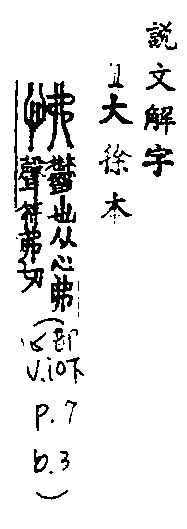 説文解字
大徐本
怫 鬱也从心弗
聲符弗切
(心部
V.10下
p.7
b.3
)